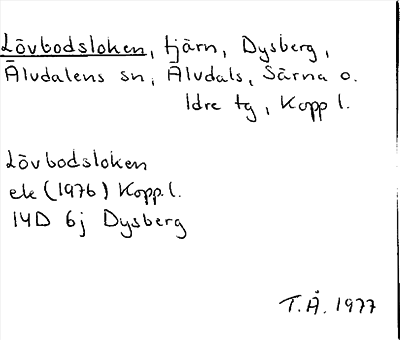 Lövbodsloken, tjärn, Dysberg,
Älvdalens sn, Älvdals, Särna o.
Idre tg, Kopp l.
Lövbodsloken
ek (1976) Kopp.l.
14D 6j Dysberg
T.Å. 1977